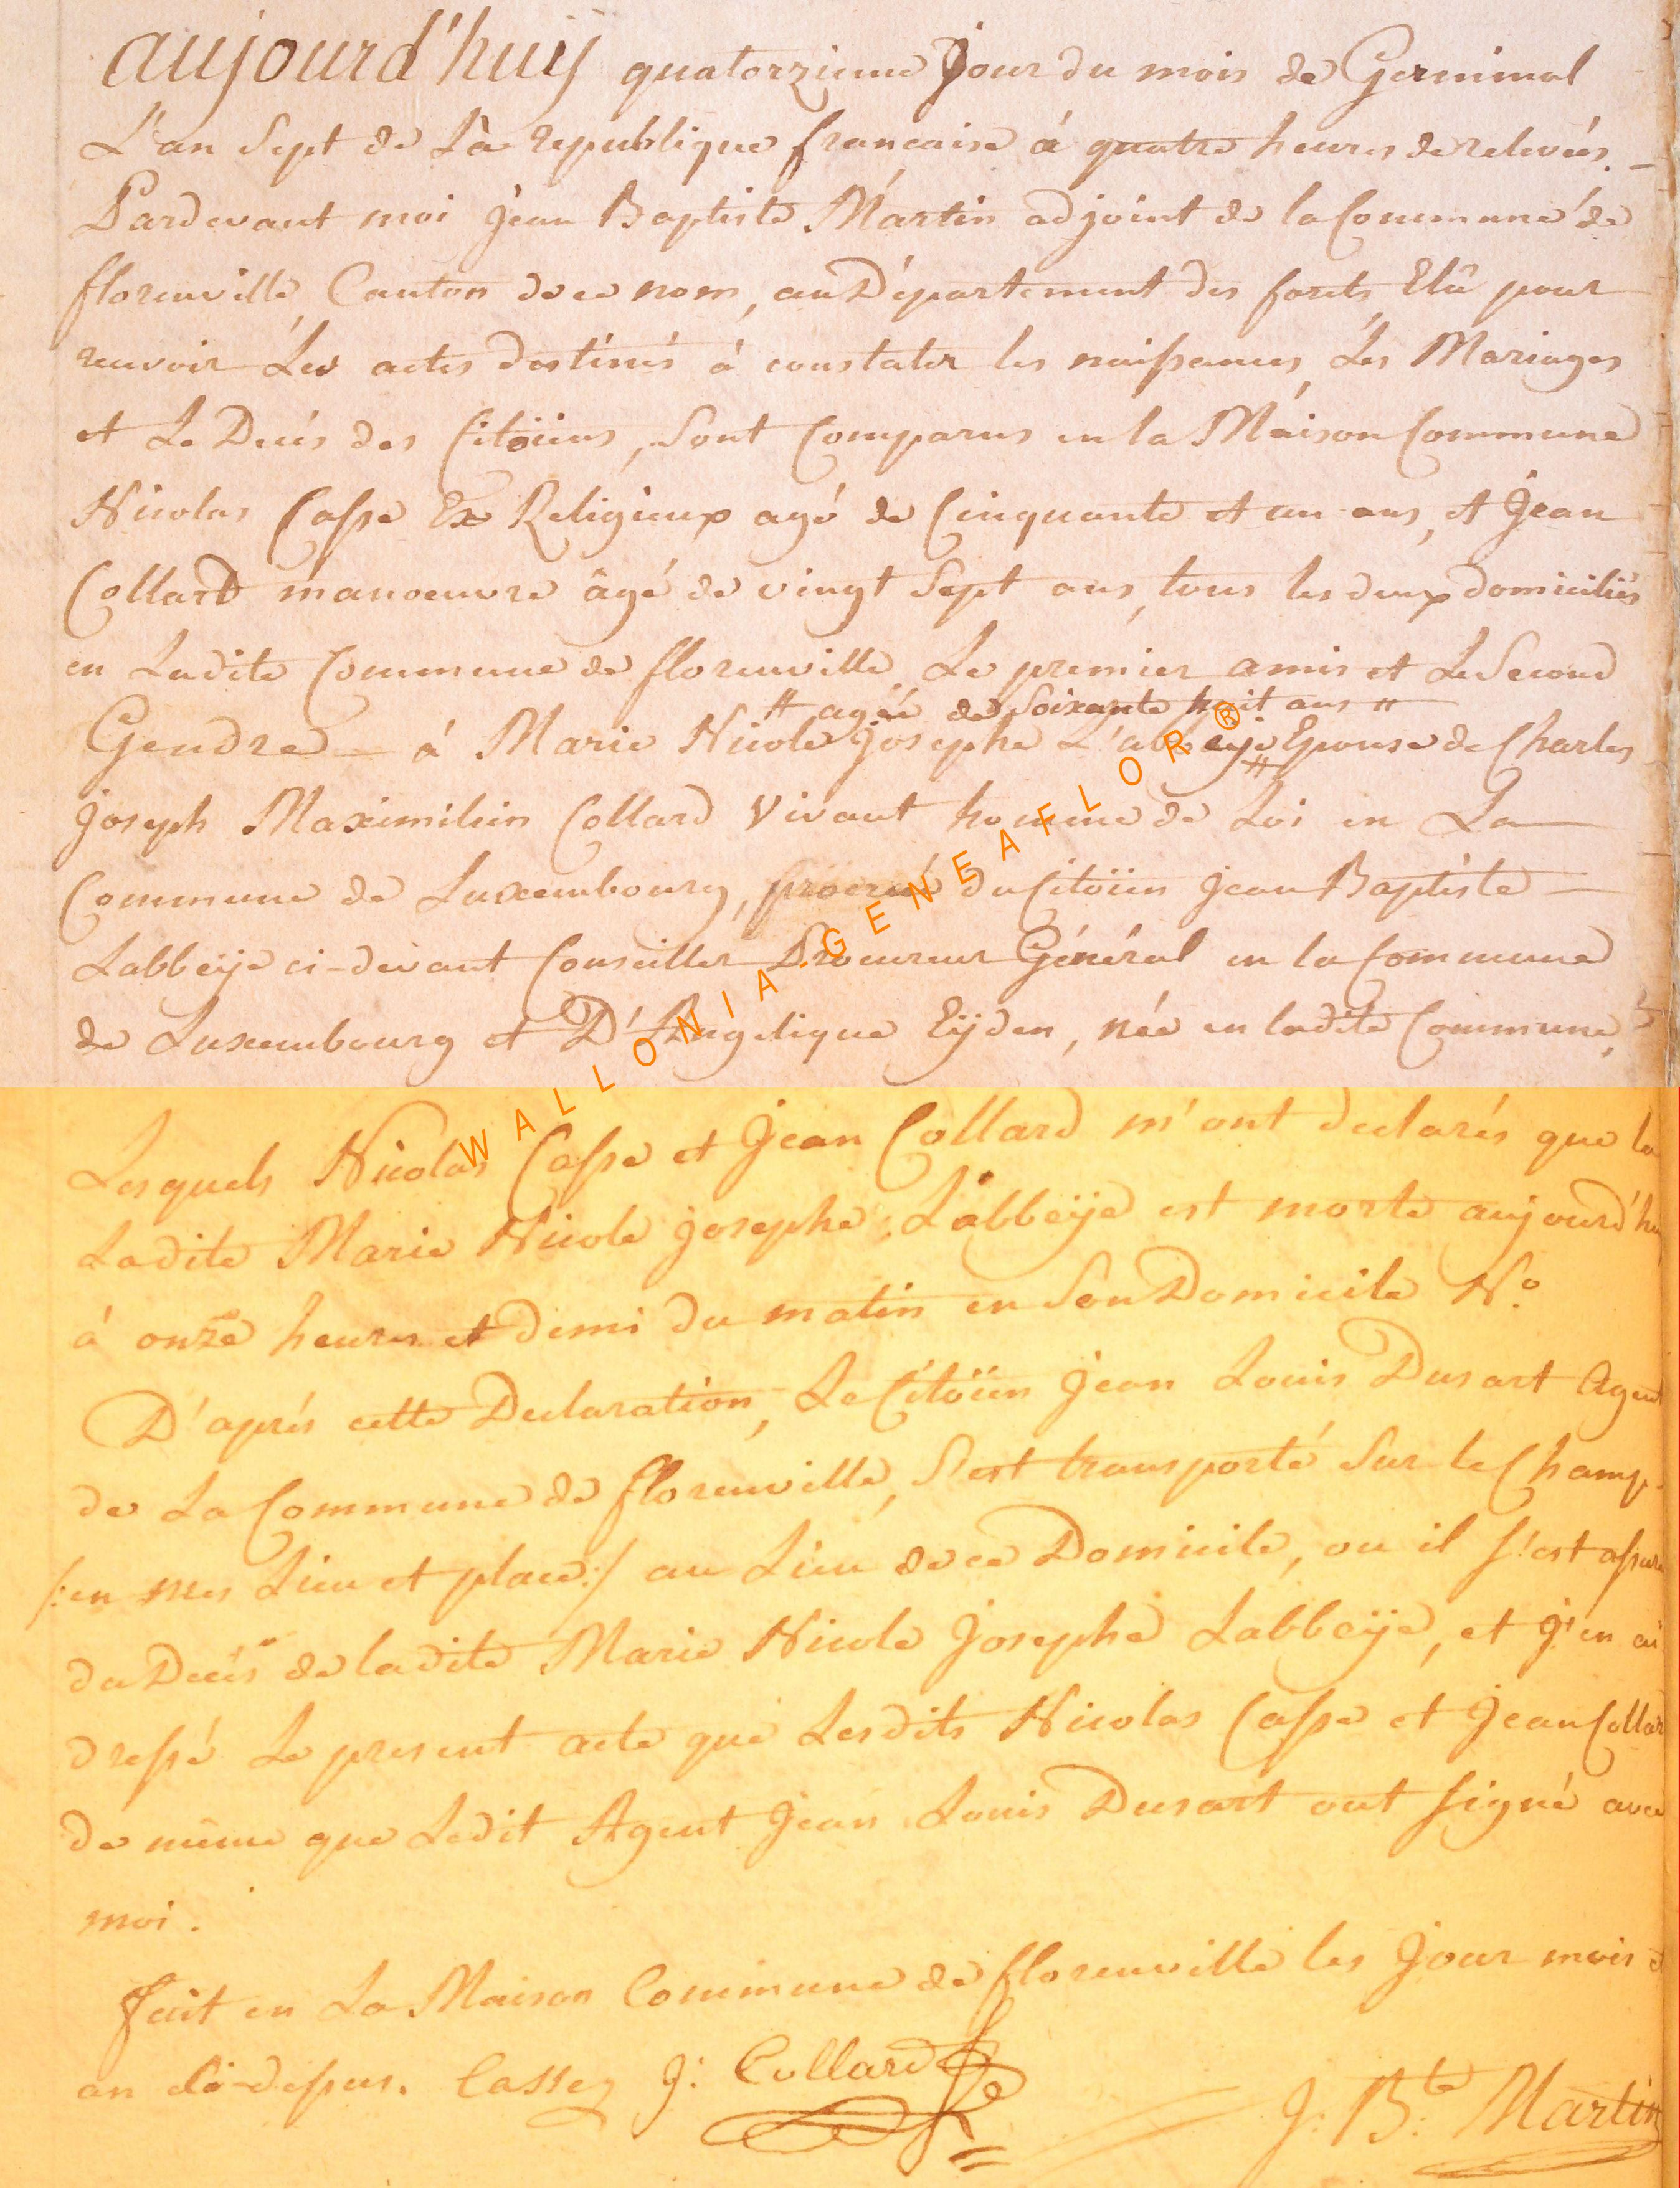 aujourd'huy quatorzieme Jour du mois de Germinal
L'an Sept de La republique francaise á quatre heures de relevées. –
Pardevant moi Jean Baptiste Martin adjoint de la Commune de
florenville, Canton de ce nom, au Département des forêts, Elû pour
recevoir Les actes destinés á constater les naissances, Les Mariages
et Le Decés des Citoÿens, Sont Comparus en la Maison Commune
Nicolas Casse Ex Religieux agé de Cinquante et un ans, et Jean
Collard manoeuvre âgé de vingt Sept ans, tous les deux domiciliés
en Ladite Commune de florenville. Le premier amis et Le Second
# agée de Soixante huit ans #
Gendre – á Marie Nicole Josephe L'abbeÿe # Epouse de Charles
Joseph Maximilien Collard Vivant homme de Loi en La
Commune de Luxembourg, procréé du Citoïen Jean Baptiste –
Labbeÿe ci-devant Conseiller Procureur Général en la Commune
de Luxembourg et D'Angelique Eÿden, née en ladite Commune,
Lesquels Nicolas Casse et Jean Collard m'ont declarés que la
Ladite Marie Nicole Josephe Labbeÿe est morte aujourd'hu
á onze heures et demi du matin en Son Domicile N.o
D'aprés cette Declaration, Le Citoïen Jean Louis Dusart Agent
de La Commune de florenville, S'est transporté Sur le Champ
/:en mes Lieu et place:/ au Lieu de ce Domicile, ou il s'est assuré
du Decés de ladite Marie Nicole Josephe Labbeÿe, et j'en ai
dressé Le present acte que Lesdits Nicolas Casse et Jean Collard
de même que Ledit Agent Jean Louis Dusart ont signé avec
moi.
fait en La Maison Commune de florenville les Jour mois et
an ci-dessus. Cassez J: Collard
J: B.te: Martin
WALLONIA-GENEAFLOR®